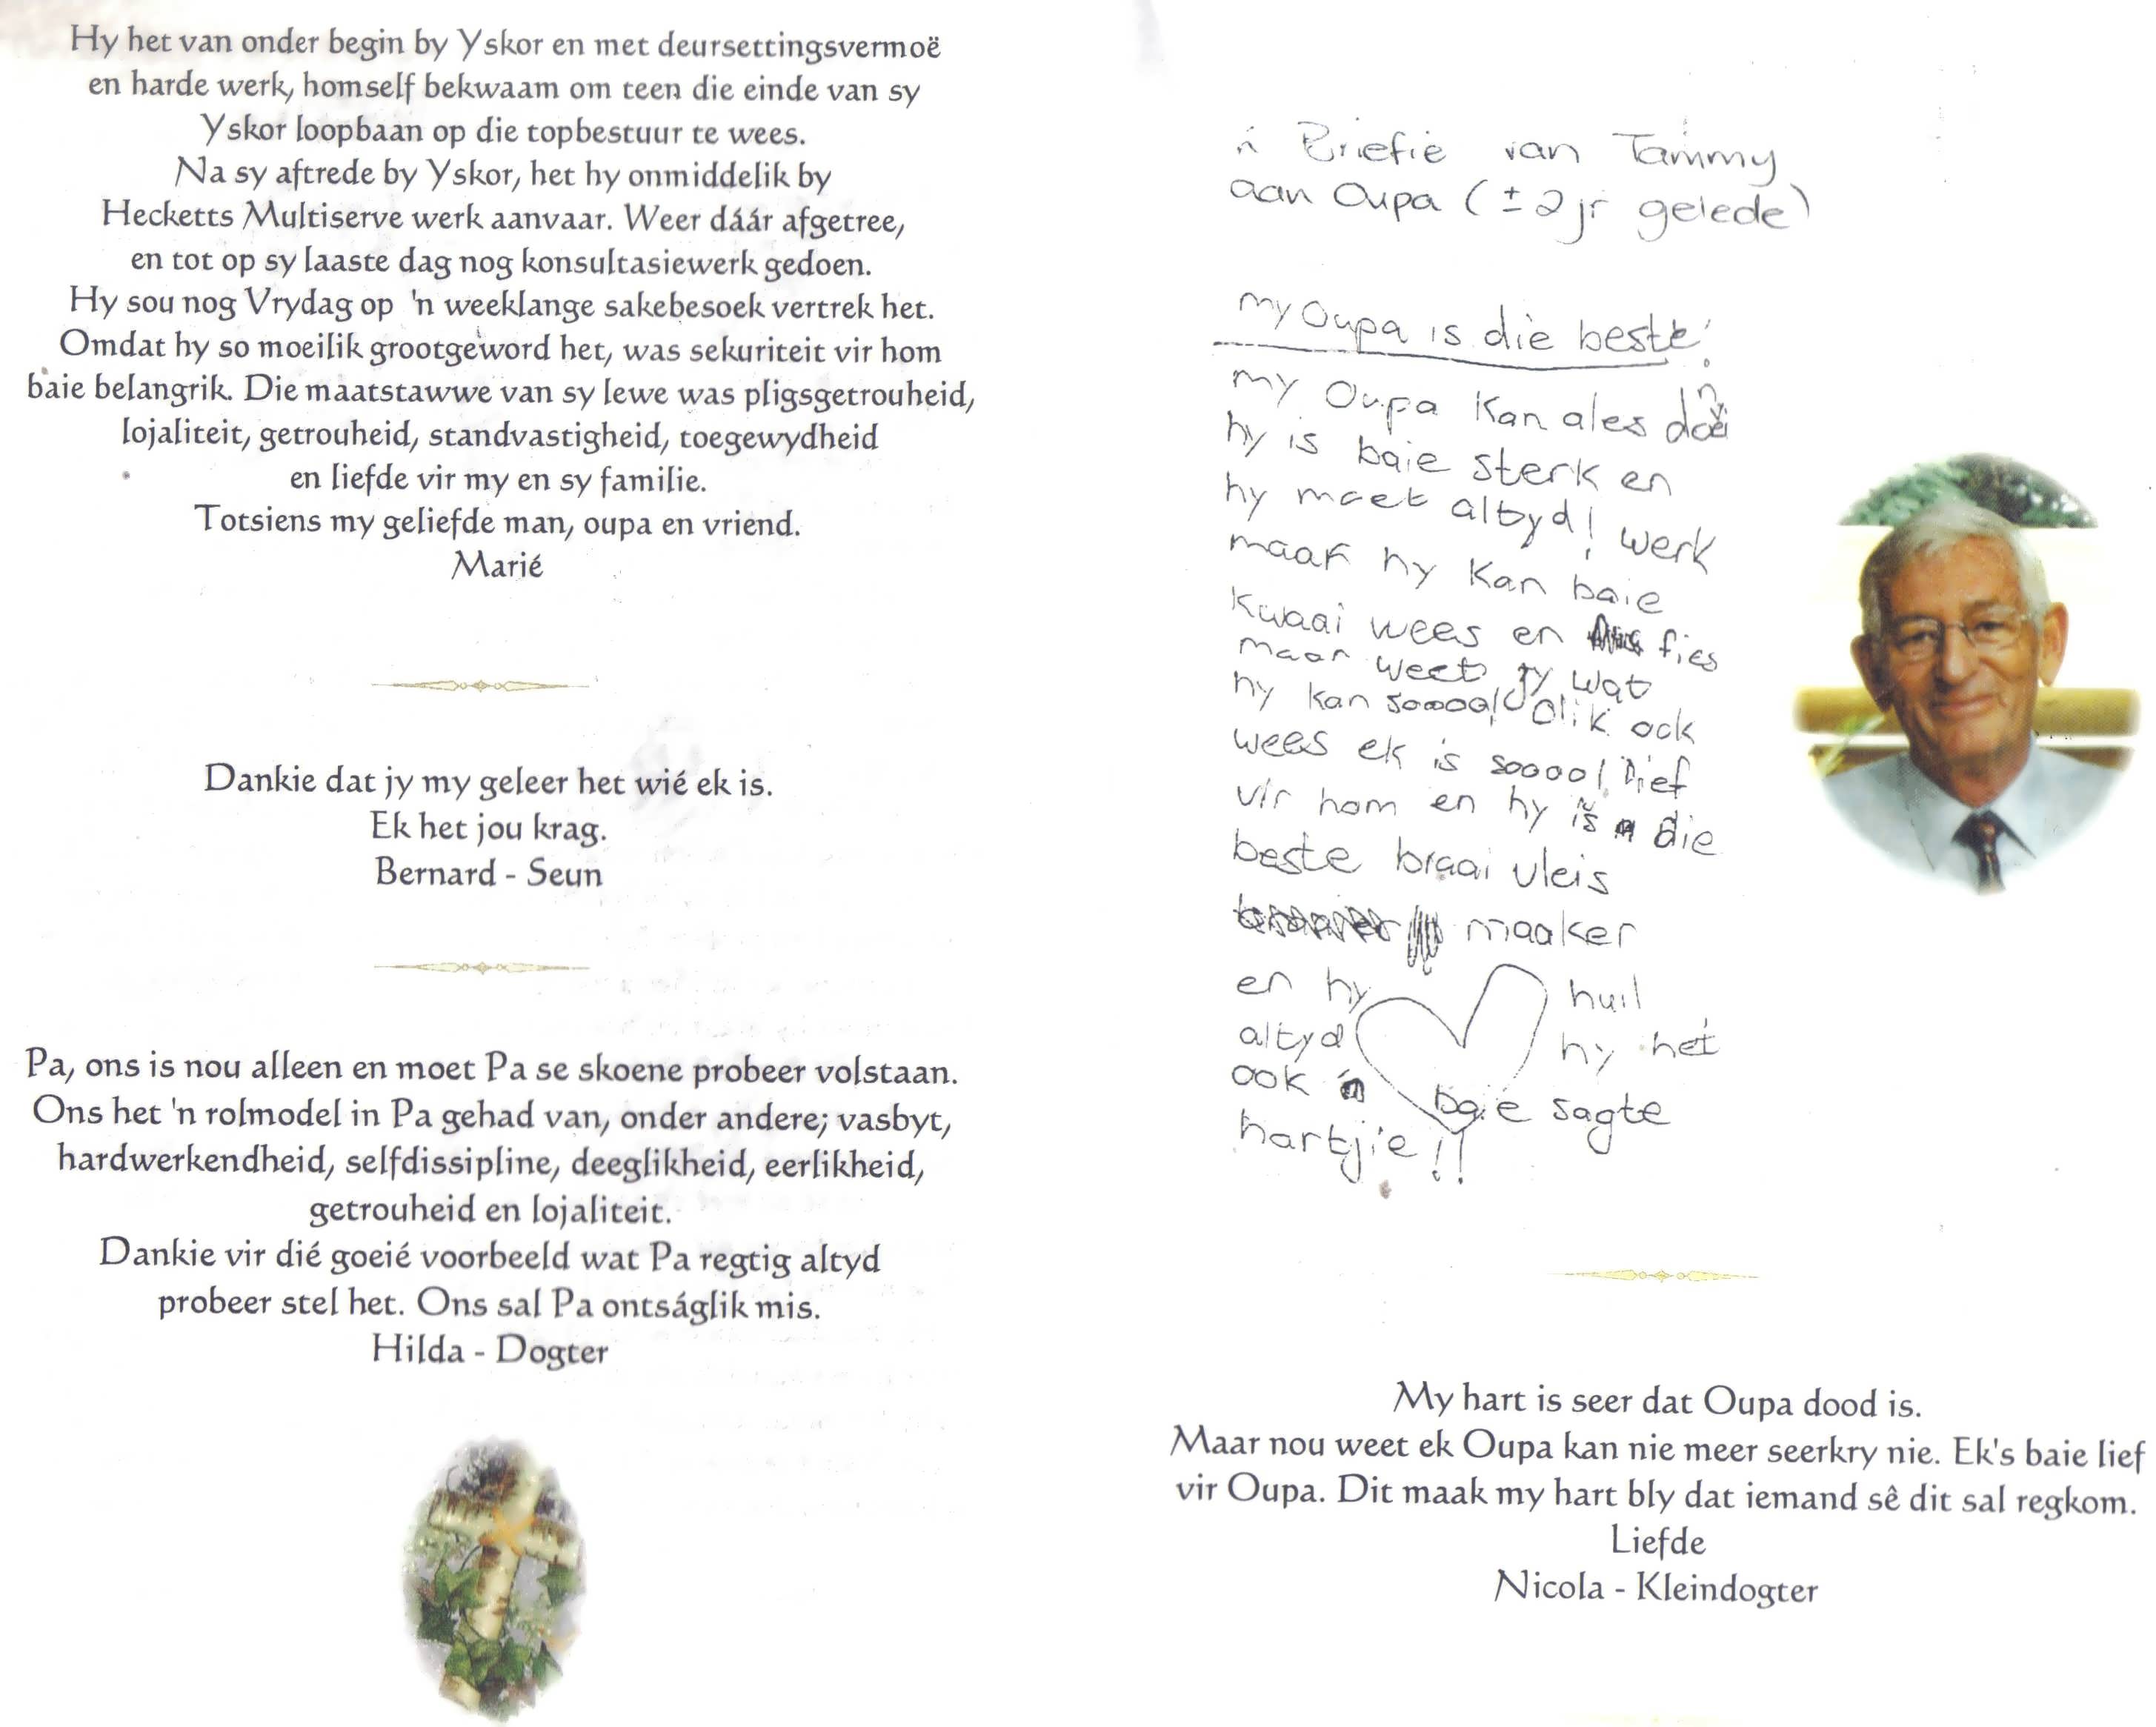 Hy het van onder begin by Yskor en met deursettingsvermoë
en harde werk, homself bekwaam om teen die einde van sy
Yskor loopbaan op die topbestuur te wees.
Na sy aftrede by Yskor, het hy onmiddelik by
Hecketts Multiserve werk aanvaar. Weer dáár afgetree,
en tot op sy laaste dag nog konsultasiewerk gedoen.
Hy sou nog Vrydag op 'n weeklange sakebesoek vertrek het.
Omdat hy so moeilik grootgeword het, was sekuriteit vir hom
baie belangrik. Die maatstawwe van sy lewe was pligsgetrouheid,
lojaliteit, getrouheid, standvastigheid, toegewydheid
en liefde vir my en sy familie.
Totsiens my geliefde man, oupa en vriend.
Marié
Dankie dat jy my geleer het wié ek is.
Ek het jou krag.
Bernard - Seun
Pa, ons is nou alleen en moet Pa se skoene probeer volstaan.
Ons het 'n rolmodel in Pa gehad van, onder andere; vasbyt,
hardwerkendheid, selfdissipline, deeglikheid, eerlikheid,
getrouheid en lojaliteit.
Dankie vir dié goeié voorbeeld wat Pa regtig altyd
probeer stel het. Ons sal Pa ontságlik mis.
Hilda - Dogter
'n Briefie van Tammy
aan Oupa (± 2 jr gelede)
my Oupa is die beste!
my Oupa kan ales
hy is baie sterk en
hy moet altyd! werk
maar hy kan baie
kwaai wees en fies
maar weet jy wat
hy kan soooo! olik ook
wees ek is soooo! lief
vir hom en hy is die
beste braai vleis
maaker
en hy huil
altyd hy het
ook 'n baie sagte
hartjie!!
My hart is seer dat Oupa dood is.
Maar nou weet ek Oupa kan nie meer seerkry nie. Ek's baie lief
vir Oupa. Dit maak my hart bly dat iemand sê dit sal regkom.
Liefde
Nicola - Kleindogter